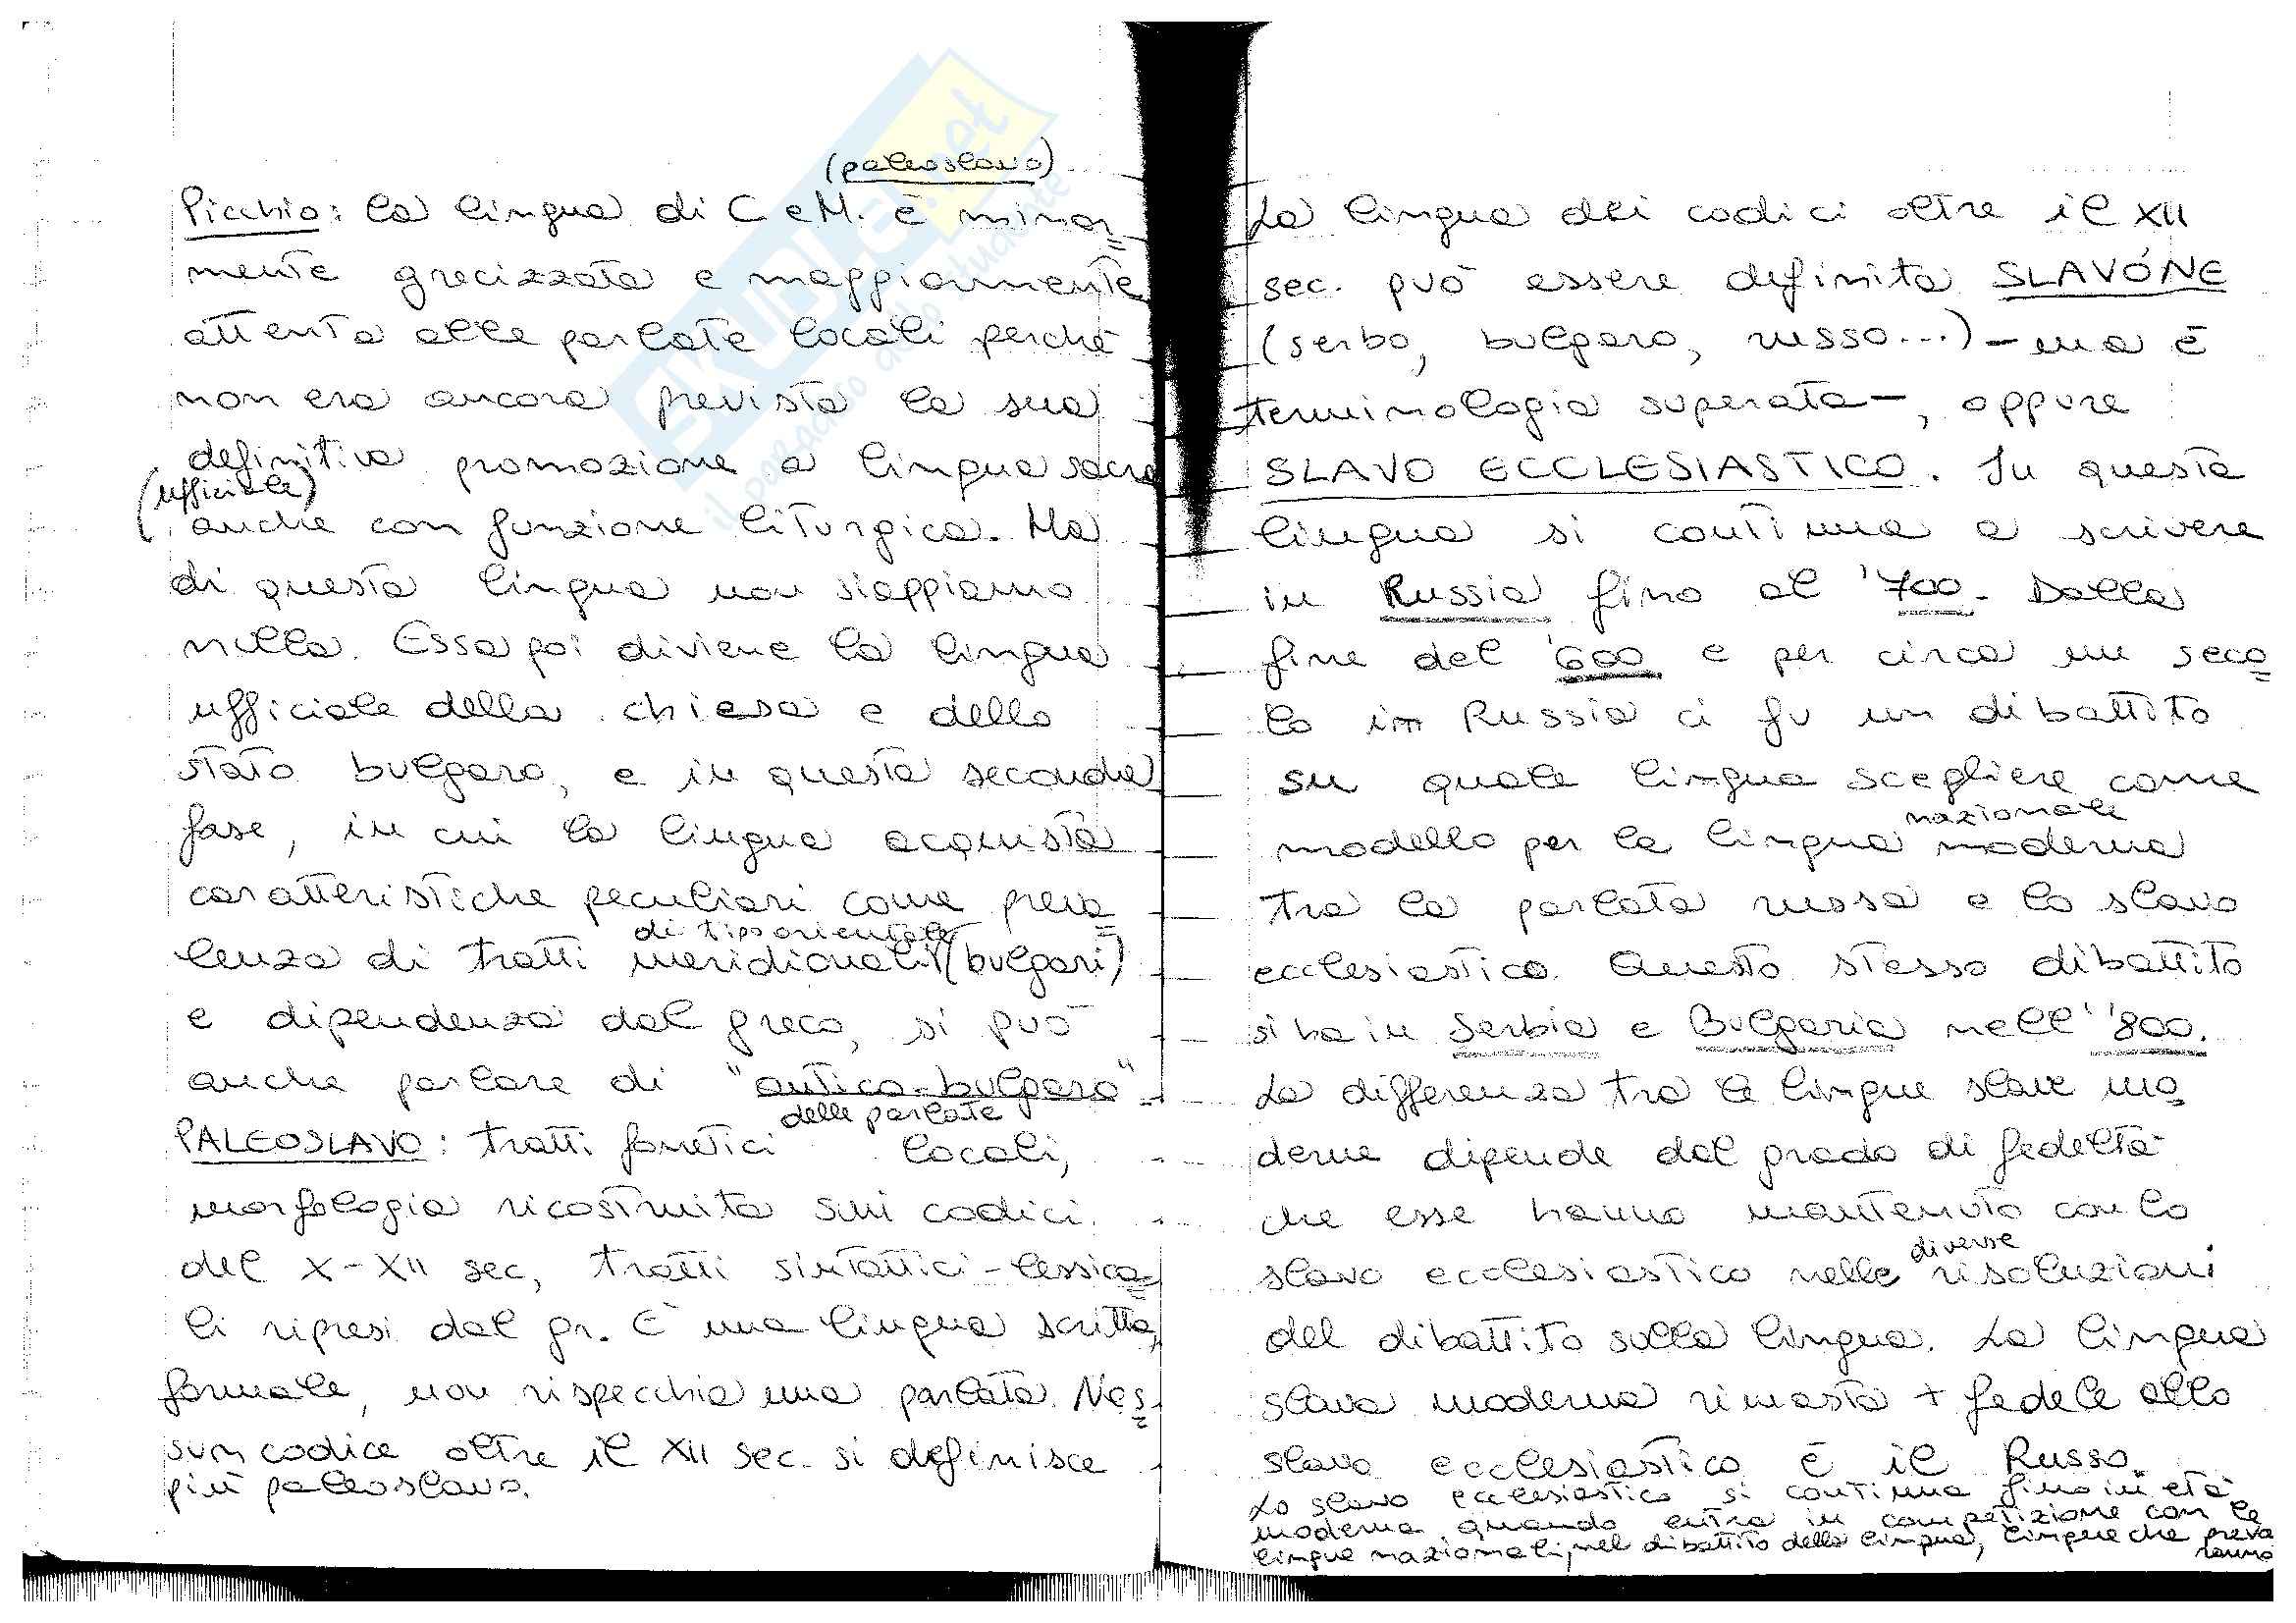 (paleoslavo)
Picchio: la lingua di C e M. è minor=
mente grecizzata e maggiormente
attenta alle parlate locali perché
non era ancora prevista la sua
definitiva promozione a lingua sacra
(ufficiale)
anche con funzione liturgica. Ma
di questa lingua non sappiamo
nulla. Essa poi diviene la lingua
ufficiale della chiesa e dello
stato bulgaro, e in questa seconda
fase, in cui la lingua acquista
caratteristiche peculiari come preva=
di tipo orientale
lenza di tratti meridionali (bulgari)
e dipendenza dal greco, si può
anche parlare di "antico-bulgaro"
delle parlate
PALEOSLAVO: tratti fonetici locali,
morfologia ricostruita sui codici
del X-XII sec, tratti sintattici-lessica=
li ripresi dal gr. È una lingua scritta,
formale, non rispecchia una parlata. Nes=
sun codice oltre il XII sec. si definisce
più paleoslavo.
La lingua dei codici oltre il XII
sec. può essere definita SLAVÓNE
(serbo, bulgaro, russo...) – ma è
terminologia superata –, oppure
SLAVO ECCLESIASTICO. In questa
lingua si continua a scrivere
in Russia fino al '700. Dalla
fine del '600 e per circa un seco=
lo in Russia ci fu un dibattito
su quale lingua scegliere come
nazionale
modello per la lingua moderna
tra la parlata russa e lo slavo
ecclesiastico. Questo stesso dibattito
si ha in Serbia e Bulgaria nell' '800.
La differenza tra le lingue slave mo=
derne dipende dal grado di fedeltà
che esse hanno mantenuto con lo
diverse
slavo ecclesiastico nelle risoluzioni
del dibattito sulla lingua. La lingua
slava moderna rimasta + fedele allo
slavo ecclesiastico è il Russo.
Lo slavo ecclesiastico si continua fino in età
moderna, quando entra in competizione con le
lingue nazionali, nel dibattito della lingua, lingue che preva
ranno
SKUOLA.net
il paradiso dello studente